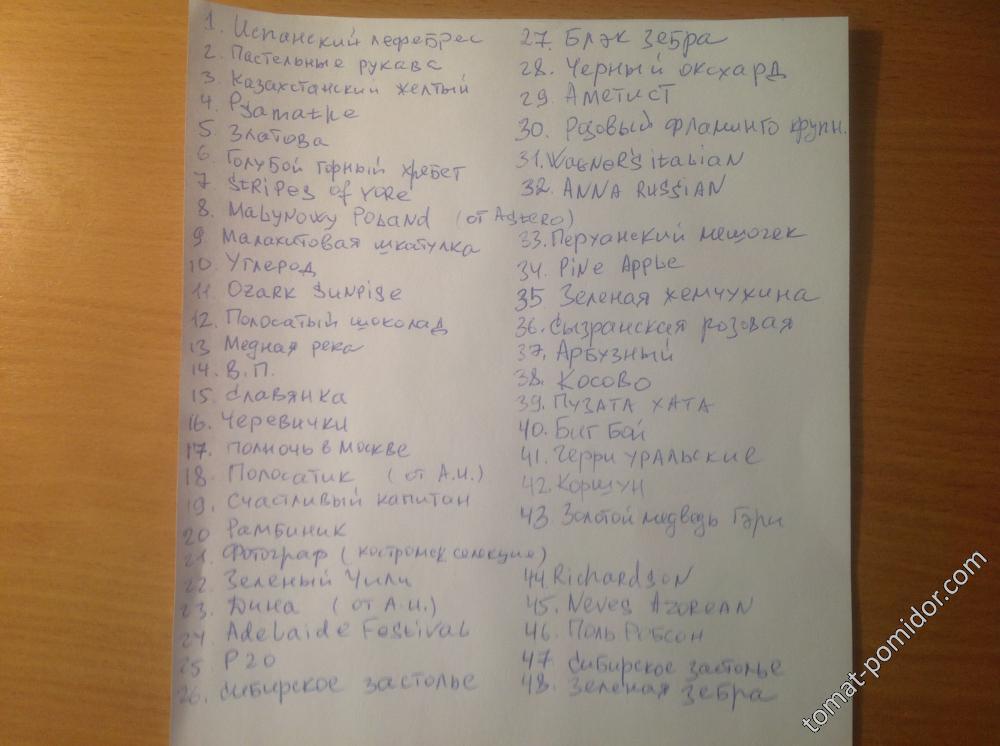 1. Испанский лефебрес
2. Пастельные рукава
3. Казахстанский желтый
4. Psamathe
5. Златова
6. Голубой горный хребет
7. Stripes of Yore
8. Malynowy Poland (от Adzero)
9. Малахитовая шкатулка
10. Углерод
11. Ozark Sunrise
12. Полосатый шоколад
13 Медная река
14. В.П.
15. Славянка
16. Черевички
17. Полночь в Москве
18. Полосатик (от А.И.)
19. Счастливый капитан
20 Рамбиник
21. Фотограф (костромск селекция)
22. Зеленый Чили
23. Дина (от А.И.)
24. Adelaide Festival
25 P20
26. Сибирское застолье
27. Блэк Зебра
28. Черный оксхард
29. Аметист
30. Розовый фламинго крупн.
31. Wagner's italian
32. ANNA RUSSIAN
33. Перуанский мешочек
34. PiNe Apple
35 Зеленая жемчужина
36. Сызранская розовая
37. Арбузный
38. Косово
39. Пузата хата
40. Биг Бой
41. Черри уральские
42. Коршун
43 Золотой медведь Гэри
44 Richardson
45. Neves Azorean
46. Поль Робсон
47 Сибирское застолье
48. Зеленая зебра
tomat-pomidor.com